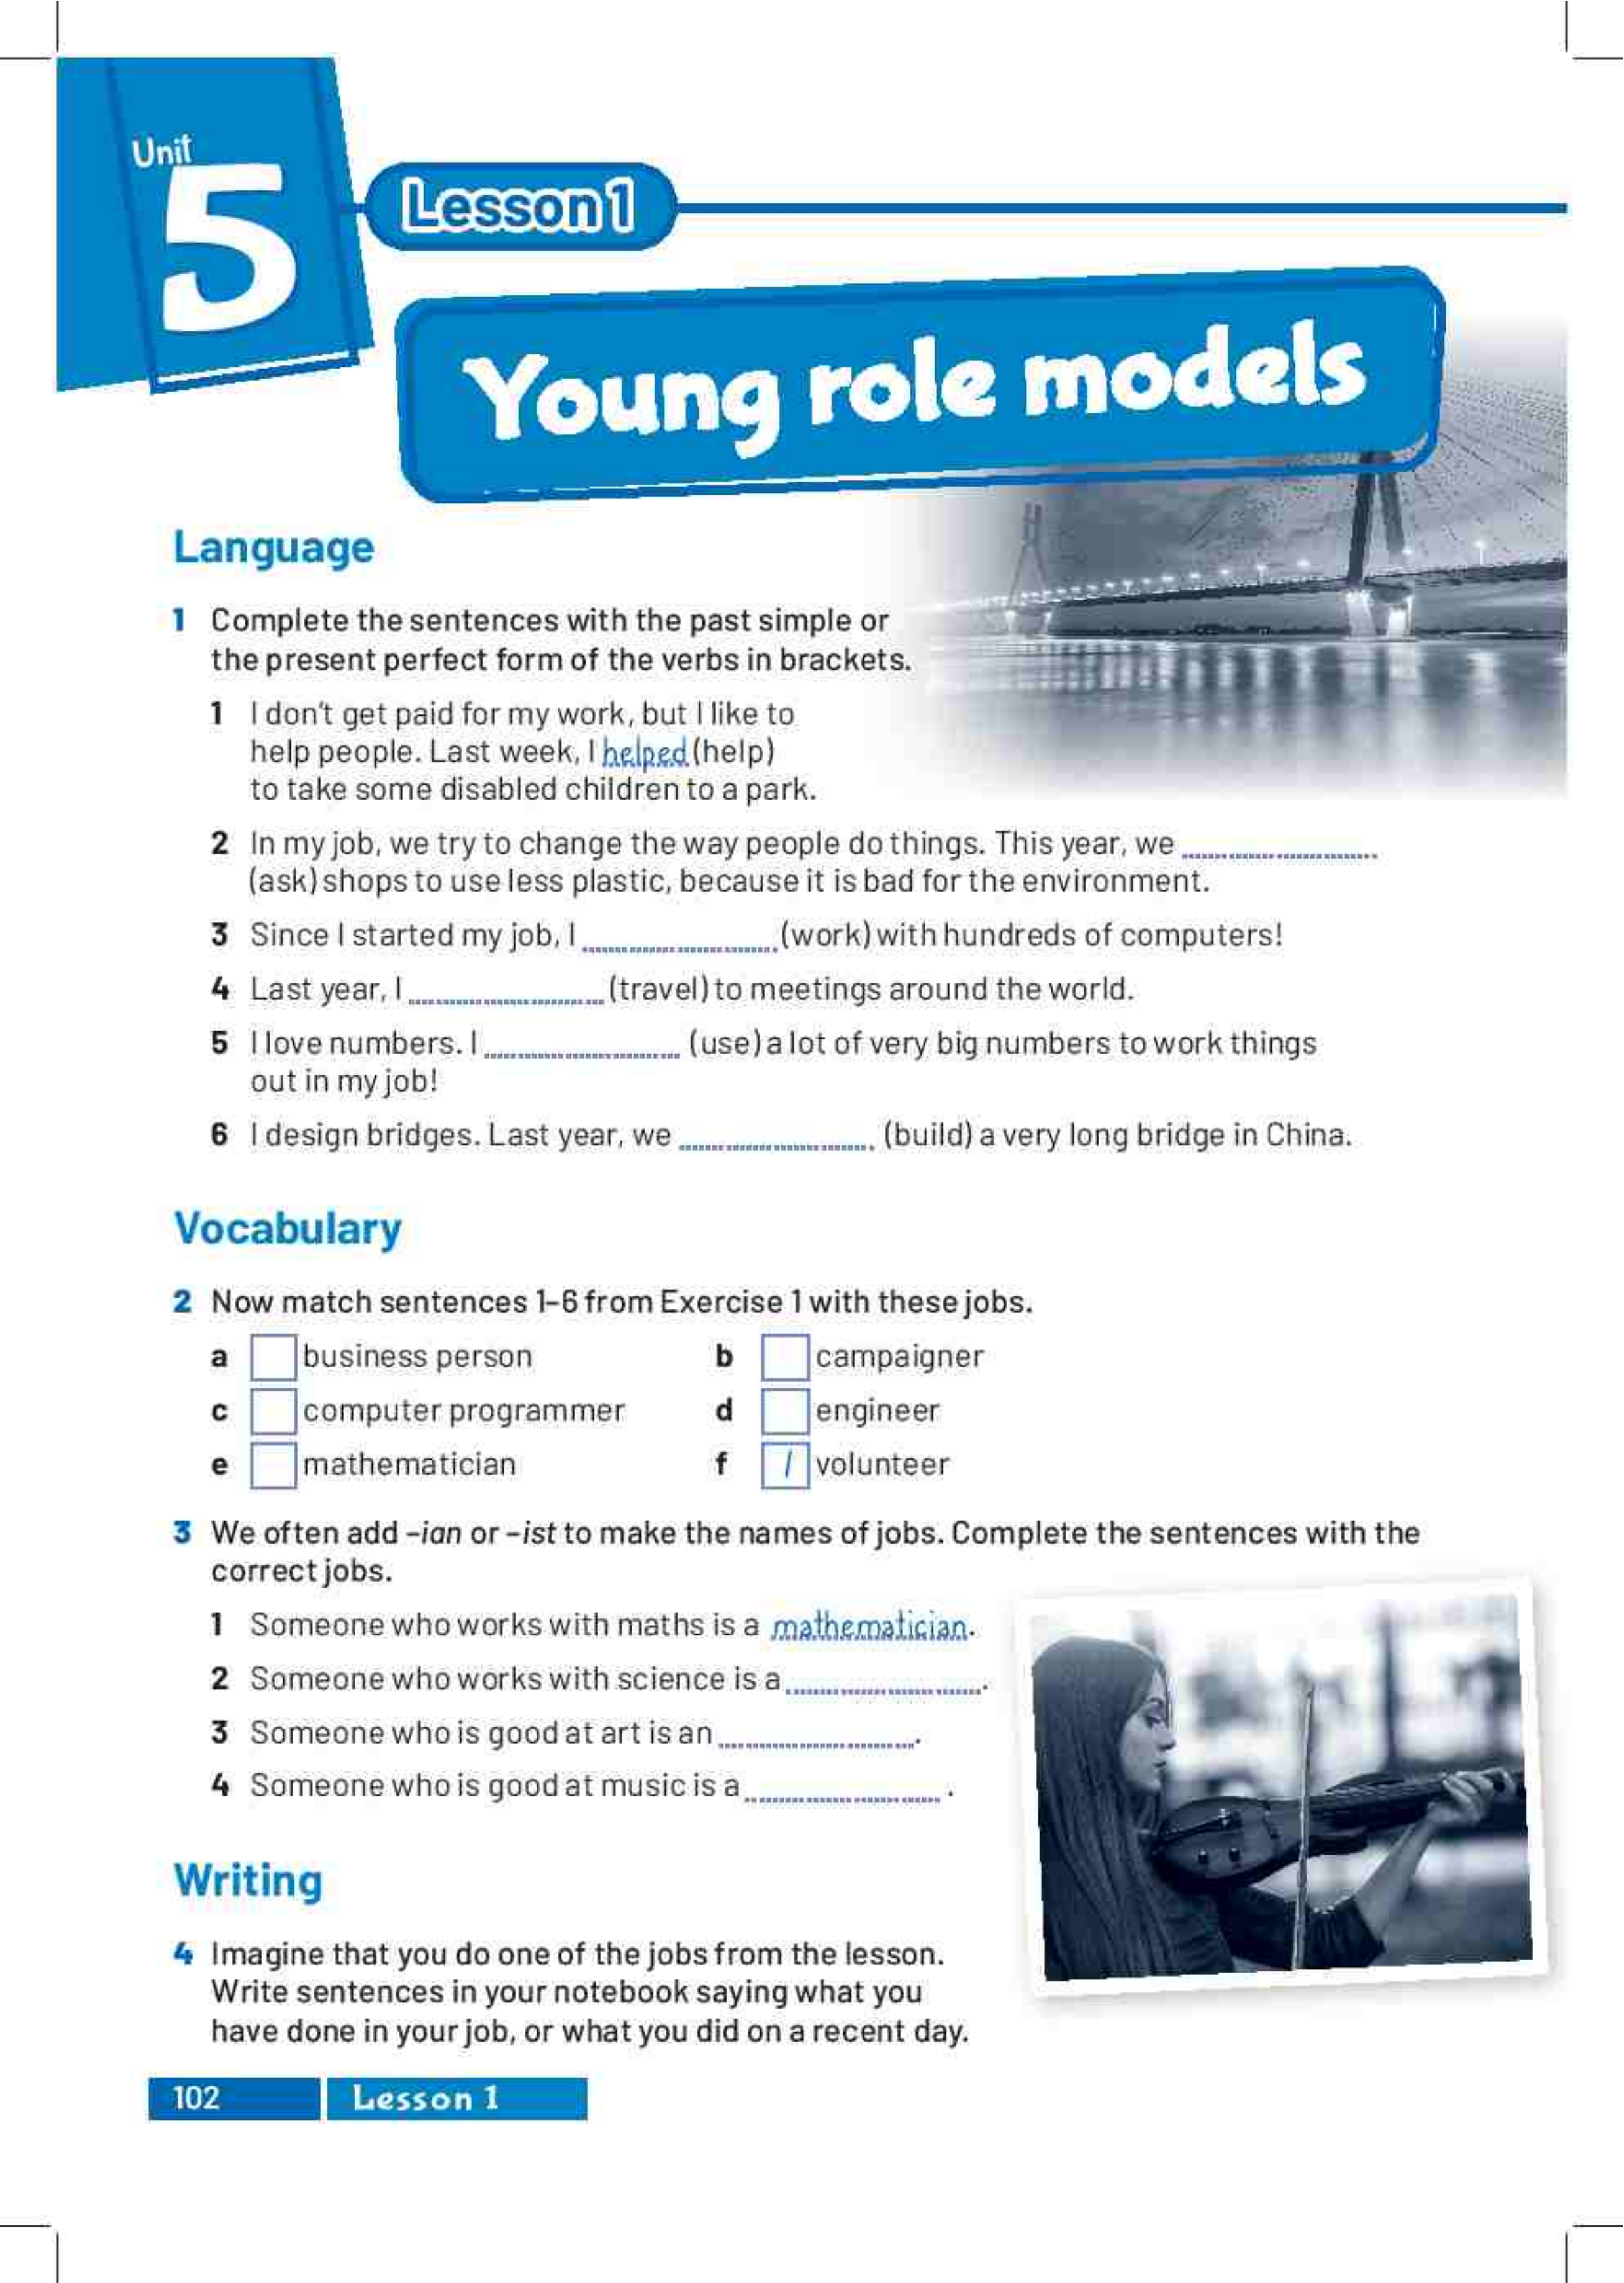 Unit
5
Lesson 1
Young role models
Language
1 Complete the sentences with the past simple or
the present perfect form of the verbs in brackets.
1 I don't get paid for my work, but I like to
help people. Last week, I helped (help)
to take some disabled children to a park.
2 In my job, we try to change the way people do things. This year, we
(ask) shops to use less plastic, because it is bad for the environment.
3 Since I started my job, I (work) with hundreds of computers!
4 Last year, I (travel) to meetings around the world.
5 I love numbers. I (use) a lot of very big numbers to work things
out in my job!
6 I design bridges. Last year, we (build) a very long bridge in China.
Vocabulary
2 Now match sentences 1–6 from Exercise 1 with these jobs.
a business person b campaigner
c computer programmer d engineer
e mathematician f 1 volunteer
3 We often add –ian or –ist to make the names of jobs. Complete the sentences with the
correct jobs.
1 Someone who works with maths is a mathematician.
2 Someone who works with science is a .
3 Someone who is good at art is an .
4 Someone who is good at music is a .
Writing
4 Imagine that you do one of the jobs from the lesson.
Write sentences in your notebook saying what you
have done in your job, or what you did on a recent day.
102 Lesson 1